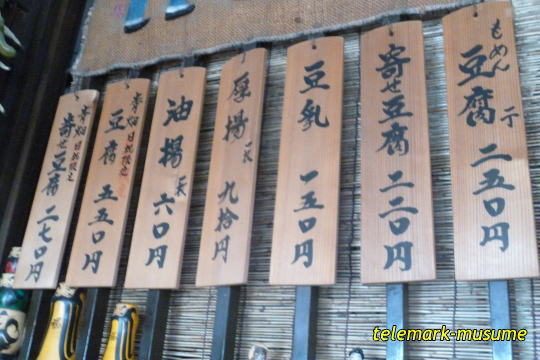 もめん
豆腐 一丁 二五〇円
寄せ豆腐 二二〇円
豆乳 一五〇円
厚揚 一ヶ 九拾円
油揚 一ケ 六〇円
豆腐 五五〇円
寄せ豆腐 二七〇円
telemark-musume